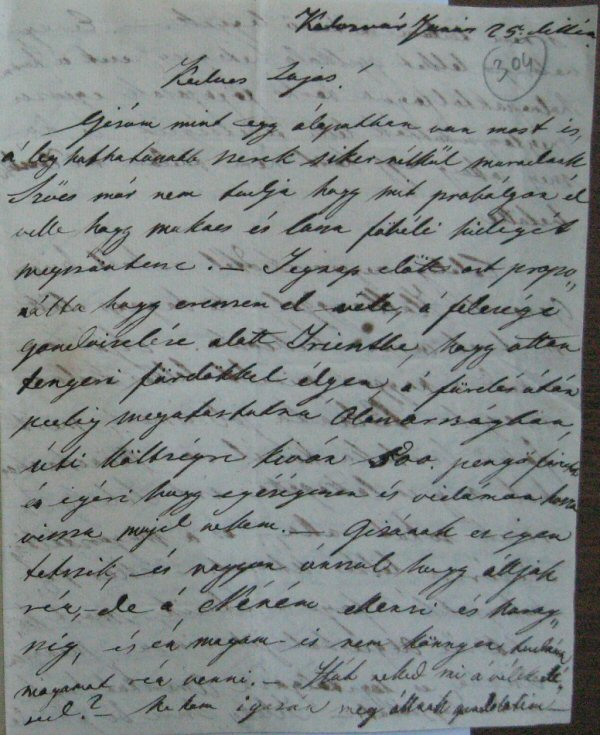 Kolosvár Junius 25. dikén
304
Kedves Lajos!
Gizám mint egy álapotban van most is,
á leg hathatosabb szerek siker nélkül maradnak
Szőcs már nem tudja hogy mit probáljon el
velle hogy makacs és lassu hideget
megszüntesse. — Tegnap előtt azt propo„
nálta hogy eresszem el véle, á felesége
gondviselése alatt Triesztbe, hogy ottan
tengeri fürdőkkel éljen á fürdés után
pedig megutaztatná Olaszországban,
úti költségre kiván 500. pengő forintot
és igéri hogy egéségesen és vidáman hozza
vissza nekem. — Gizának ez igen
tetszik, és nagyon hogy álljak
reá, — de á Néném és
és én magam is nem könnyen tudám
magamat reá venni. — Hát neked mi á vélekedé
sed? — Nekem igazán meg álltak gondolatim —